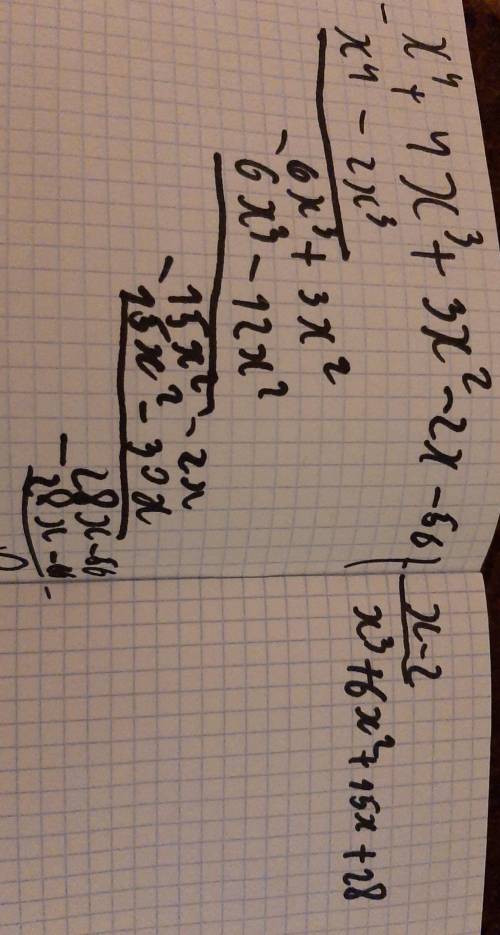 x⁴ + 4x³ + 3x² - 2x - 56 | x - 2
- x⁴ - 2x³
x³ + 6x² + 15x + 28
- 6x³ + 3x²
6x³ - 12x²
- 15x² - 2x
15x² - 30x
- 28x - 56
28x -
0